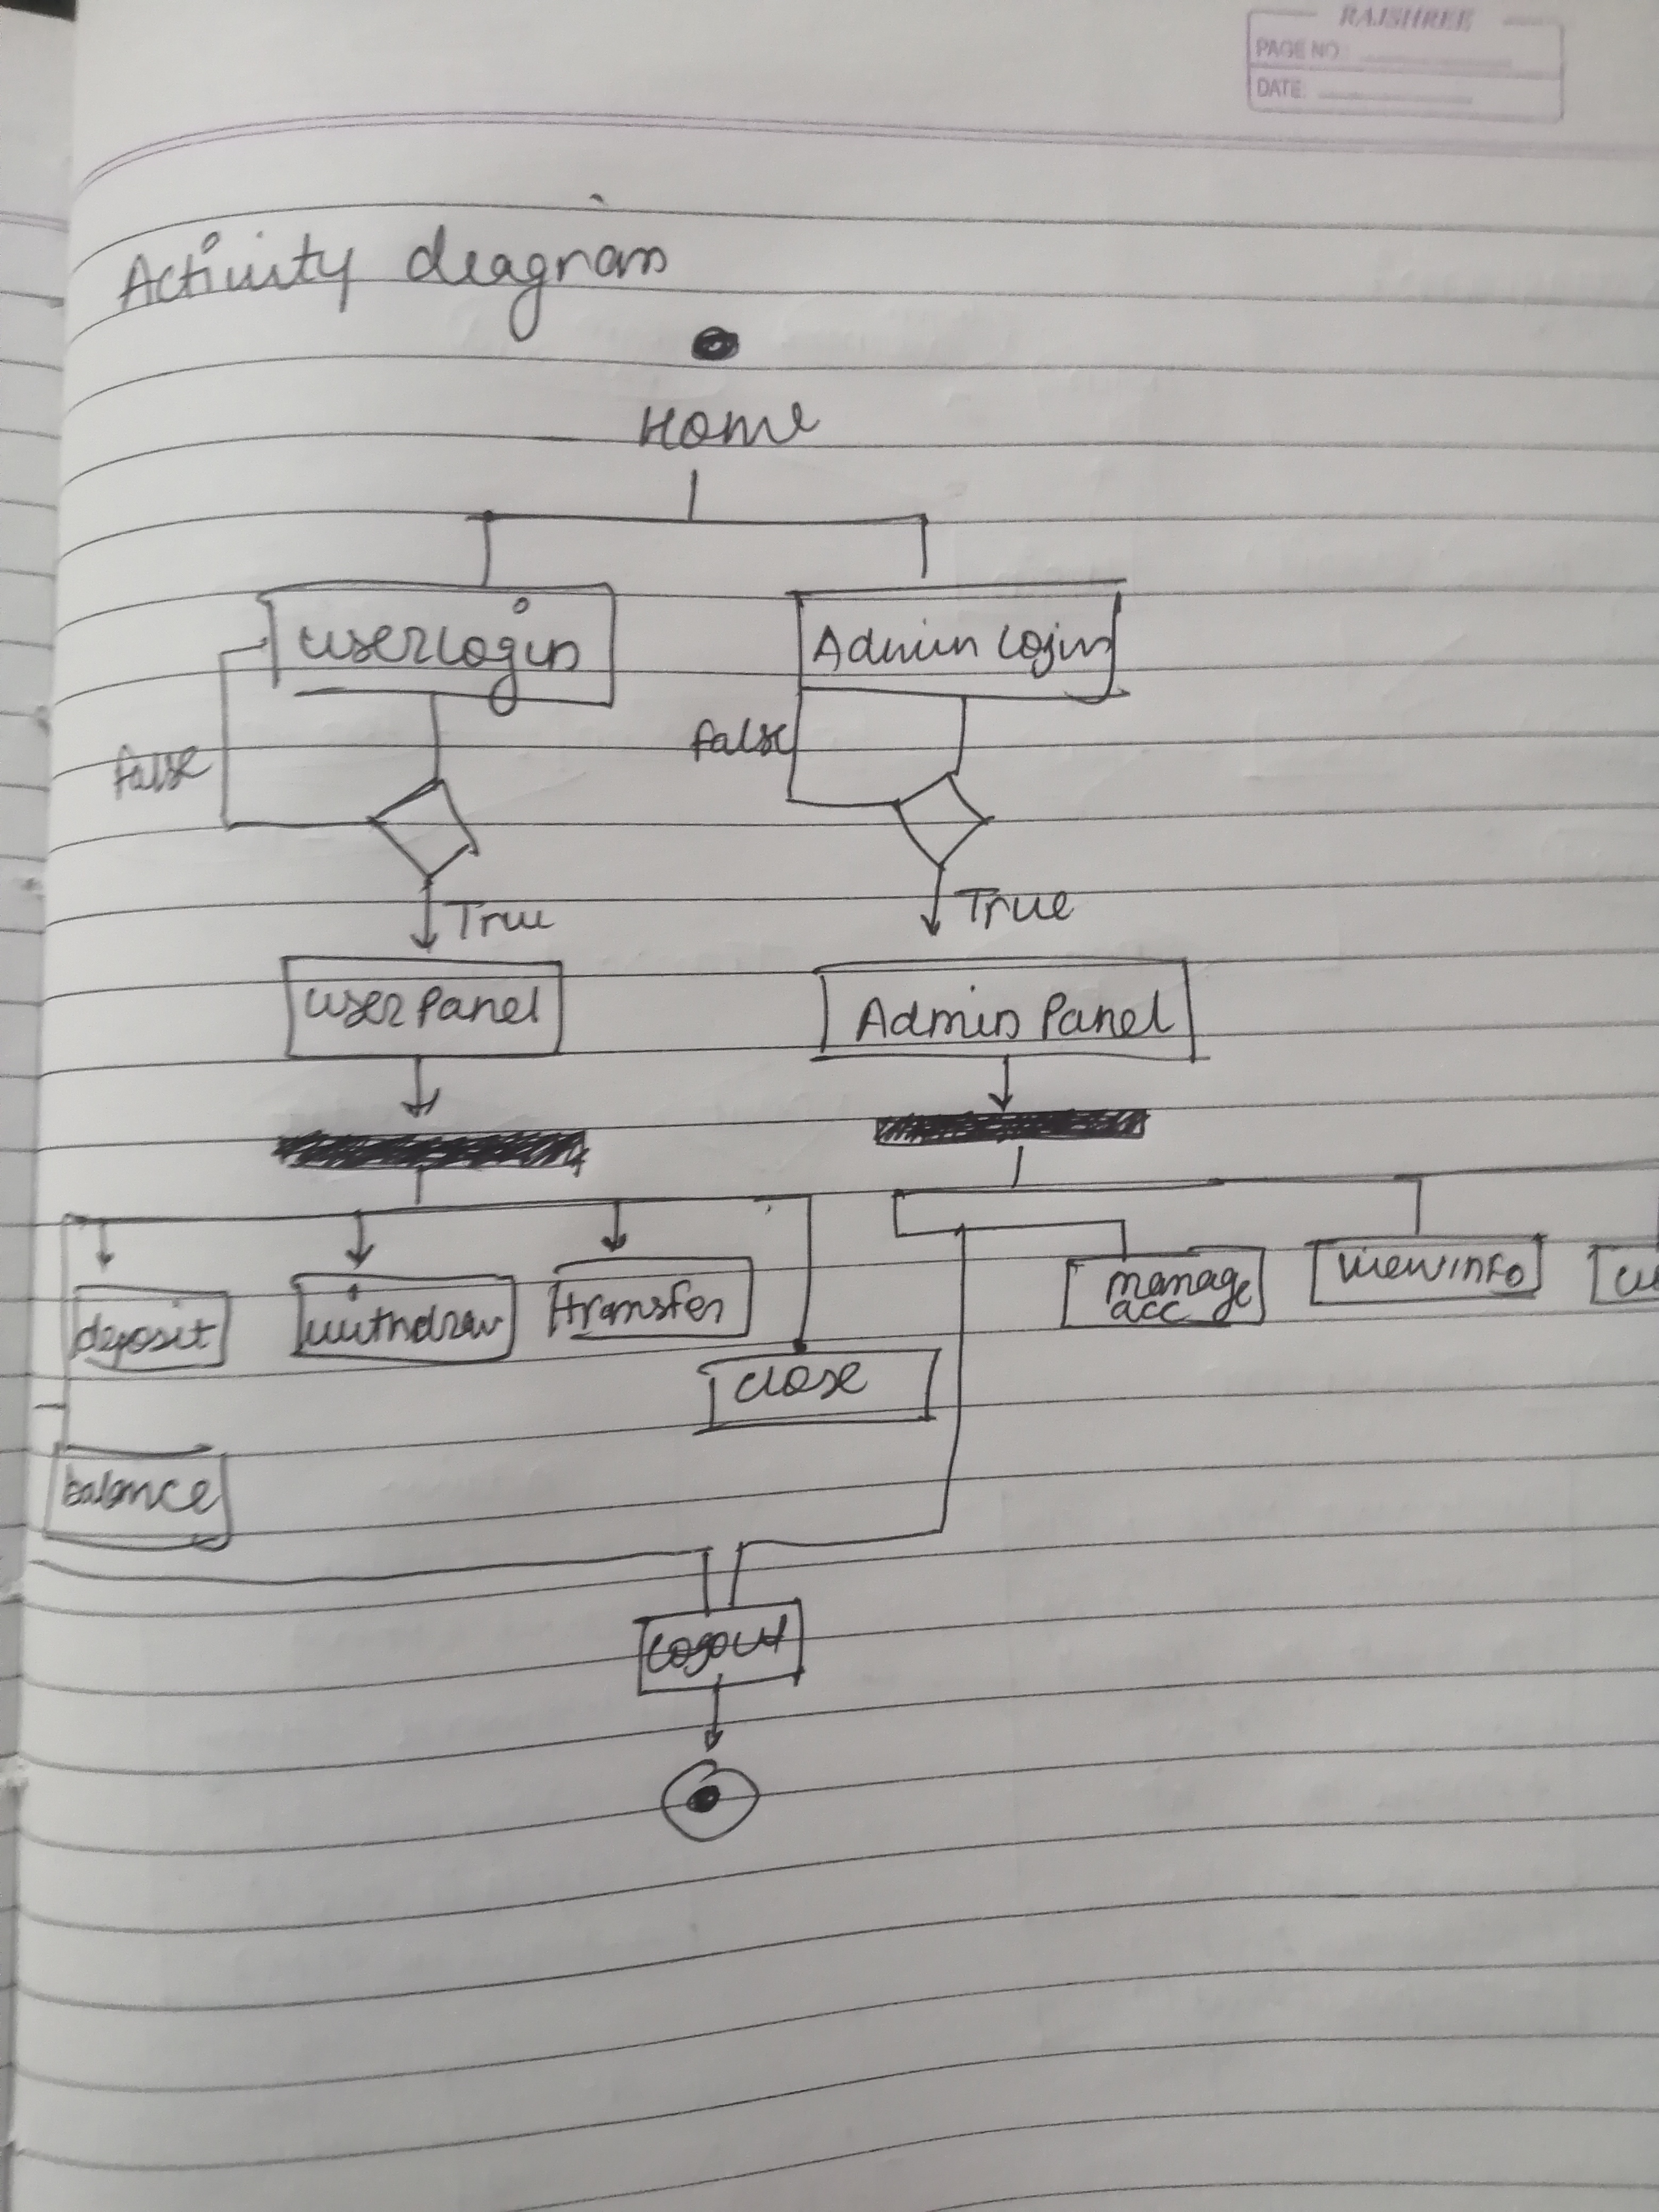 RAJSHREE
PAGE NO.
DATE:
Activity diagram
Home
user Login
Admin Login
false
false
True
True
user Panel
Admin Panel
deposit
withdraw
transfer
manage
acc
view info
close
balance
Logout